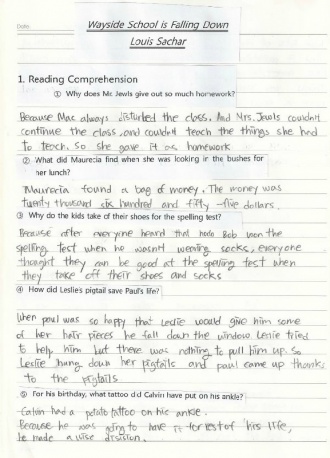 Date:
Wayside School is Falling Down
Louis Sachar
1. Reading Comprehension
① Why does Mr. Jewls give out so much homework?
Because Mac always disturbed the class. And Mrs. Jewls couldn't
continue the class, and couldn't teach the things she had
to teach. So she gave it as homework
② What did Maurecia find when she was looking in the bushes for
her lunch?
Maurecia found a bag of money. The money was
twenty thousand six hundred and fifty-five dollars.
③ Why do the kids take of their shoes for the spelling test?
Because after everyone heard that Bob won the
spelling test when he wasn't wearing socks, everyone
thought they can be good at the spelling test when
they take off their shoes and socks
④ How did Leslie's pigtail save Paul's life?
When paul was so happy that Leslie would give him some
of her hair pieces he fall down the window Leslie tried
to help him but there was nothing to pull him up. So
Leslie hung down her pigtails and paul came up thanks
to the pigtails
⑤ For his birthday, what tattoo did Calvin have put on his ankle?
Calvin had a potato tattoo on his ankle.
Because he was going to have it for rest of his life,
he made a wise dision.